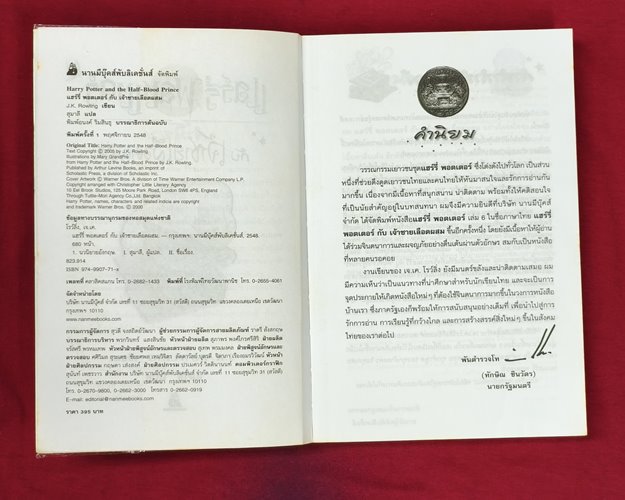 นานมีบุ๊คส์พับลิเคชั่นส์ จัดพิมพ์
Harry Potter and the Half-Blood Prince
แฮร์รี่ พอตเตอร์ กับ เจ้าชายเลือดผสม
J.K. Rowling เขียน
สุมาลี แปล
พิมพ์อนงค์ ริมสินธุ บรรณาธิการต้นฉบับ
พิมพ์ครั้งที่ 1 พฤศจิกายน 2548
Original Title: Harry Potter and the Half-Blood Prince
Text Copyright © 2005 by J.K. Rowling
Illustrations by Mary GrandPré
from Harry Potter and the Half-Blood Prince by J.K. Rowling.
Published by Arthur Levine Books, an imprint of
Scholastic Press, a division of Scholastic Inc.
Cover Artwork © Warner Bros. A division of Time Warner Entertainment Company L.P.
Copyright arranged with Christopher Little Literary Agency
10 Eel Brook Studios, 125 Moore Park Road, London SW6 4PS, England
Through Tuttle-Mori Agency Co., Ltd. Bangkok
Harry Potter, names, characters and related indicia are copyright
and trademark Warner Bros. © 2000
ข้อมูลทางบรรณานุกรมของหอสมุดแห่งชาติ
โรว์ลิ่ง, เจ.เค.
แฮร์รี่ พอตเตอร์ กับ เจ้าชายเลือดผสม. — กรุงเทพฯ: นานมีบุ๊คส์พับลิเคชั่นส์, 2548.
680 หน้า.
1. นวนิยายอังกฤษ. I. สุมาลี, ผู้แปล. II. ชื่อเรื่อง.
823.914
ISBN 974-9907-71-x
เพลทที่ คลาสิคสแกน โทร. 0-2682-1433 พิมพ์ที่ โรงพิมพ์ไทยวัฒนาพานิช โทร. 0-2655-4061
จัดจำหน่ายโดย
บริษัท นานมีบุ๊คส์ จำกัด เลขที่ 11 ซอยสุขุมวิท 31 (สวัสดี) ถนนสุขุมวิท แขวงคลองเตยเหนือ เขตวัฒนา
กรุงเทพฯ 10110
www.nanmeebooks.com
โทร. 0-2670-9800, 0-2662-3000 โทรสาร 0-2662-0919
E-mail: editorial@nanmeebooks.com
ราคา 395 บาท
คำนิยม
วรรณกรรมเยาวชนชุดแฮร์รี่ พอตเตอร์ ซึ่งโด่งดังไปทั่วโลก เป็นส่วน
หนึ่งที่ช่วยดึงดูดเยาวชนไทยและคนไทยให้หันมาสนใจและรักการอ่านกัน
มากขึ้น เนื่องจากมีเนื้อหาที่สนุกสนาน น่าติดตาม พร้อมทั้งให้คติสอนใจ
ที่เป็นนัยสำคัญอยู่ในบทสนทนา ผมจึงมีความยินดีที่บริษัท นานมีบุ๊คส์
จำกัด ได้จัดพิมพ์หนังสือแฮร์รี่ พอตเตอร์ เล่ม 6 ในชื่อภาษาไทย แฮร์รี่
พอตเตอร์ กับ เจ้าชายเลือดผสม ขึ้นอีกครั้งหนึ่ง โดยยังมีเนื้อหาให้ผู้อ่าน
ได้ร่วมจินตนาการและผจญภัยอย่างตื่นเต้นผ่านตัวอักษร สมกับเป็นหนังสือ
ที่หลายคนรอคอย
งานเขียนของ เจ.เค. โรว์ลิ่ง ยังมีมนตร์ขลังและน่าติดตามเสมอ ผม
มีความเห็นว่าเป็นแนวทางที่น่าศึกษาสำหรับนักเขียนไทย และจะเป็นการ
จุดประกายให้เกิดหนังสือใหม่ๆ ที่ต้องใช้จินตนาการมากขึ้นในวงการหนังสือ
บ้านเรา ซึ่งภาครัฐเองก็พร้อมให้การสนับสนุนอย่างเต็มที่ เพื่อนำไปสู่การ
รักการอ่าน การเรียนรู้ที่กว้างไกล และการสร้างสรรค์สิ่งใหม่ๆ ขึ้นในสังคม
ไทยของเราต่อไป
พันตำรวจโท
(ทักษิณ ชินวัตร)
นายกรัฐมนตรี